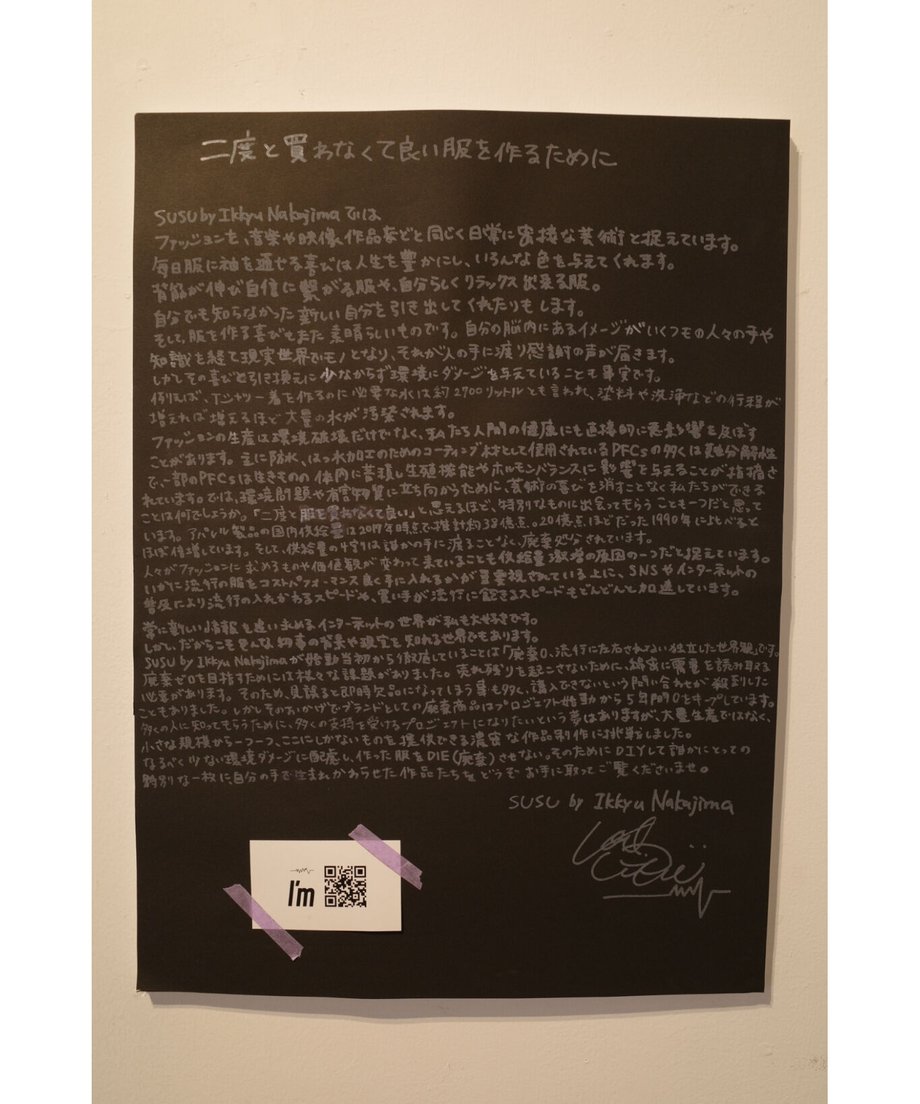 二度と買わなくて良い服を作るために
SUSU by Ikkyu Nakajimaでは
ファッションを、音楽や映像作品などと同じく日常に密接な芸術と捉えています。
毎日服に袖を通せる喜びは人生を豊かにし、いろんな色を与えてくれます。
背筋が伸び自信に繋がる服や、自分らしくリラックス出来る服。
自分でも知らなかった新しい自分を引き出してくれたりもします。
そして、服を作る喜びもまた素晴らしいものです。自分の脳内にあるイメージがいくつもの人々の手や
知識を経て現実世界でモノとなり、それが人の手に渡り感謝の声が届きます。
しかしその喜びと引き換えに少なからず環境にダメージを与えていることも事実です。
例えば、Tシャツ一着を作るのに必要な水は約2700リットルとも言われ、染料や洗浄などの行程が
増えれば増えるほど大量の水が汚染されます。
ファッションの生産は環境破壊だけでなく、私たち人間の健康にも直接的に悪影響を及ぼす
ことがあります。主に防水、はっ水加工のためのコーティング材として使用されているPFCsの多くは難分解性
で、一部のPFCsは生きものの体内に蓄積し生殖機能やホルモンバランスに影響を与えることが指摘さ
れています。では、環境問題や有害物質に立ち向かうために、芸術の喜びを消すことなく私たちができる
ことは何でしょうか。「二度と服を買わなくて良い」と思えるほど、特別なものに出会ってもらうことも一つだと思って
います。アパレル製品の国内供給量は2019年時点で推計約38億点。20億点ほどだった1990年に比べると
ほぼ倍増しています。そして、供給量の4割は誰かの手に渡ることなく、廃棄処分されています。
人々がファッションに求めるものや価値観が変わって来ていることも供給量激増の原因の一つだと捉えています。
いかに流行の服をコストパフォーマンス良く手に入れるかが重要視されている上に、SNSやインターネットの
普及により流行の入れかわるスピードや、買い手が流行に飽きるスピードもどんどんと加速しています。
常に新しい情報を追い求めるインターネットの世界が私も大好きです。
しかし、だからこそそんな物事の背景や現実を知れる世界でもあります。
SUSU by Ikkyu Nakajimaが始動当初から徹底していることは「廃棄0、流行に左右されない独立した世界観」です。
廃棄ゼロを目指すためには様々な課題がありました。売れ残りを起こさないために、綿密に需要を読み取る
必要があります。そのため、見誤ると即時欠品になってしまう事も多く、購入できないという問い合わせが殺到した
こともありました。しかしそのおかげでブランドとしての廃棄商品はプロジェクト始動から5年間0をキープしています。
多くの人に知ってもらうために、多くの支持を受けるプロジェクトになりたいという夢はありますが、大量生産ではなく、
小さな規模から一つ一つ、ここにしかないものを提供できる濃密な作品制作に挑戦しました。
なるべく少ない環境ダメージに配慮し、作った服をDIE(廃棄)させない。そのためにDIYして誰かにとっての
特別な一枚に、自分の手で生まれかわらせた作品たちをどうぞお手に取ってご覧くださいませ。
SUSU by Ikkyu Nakajima
I'm